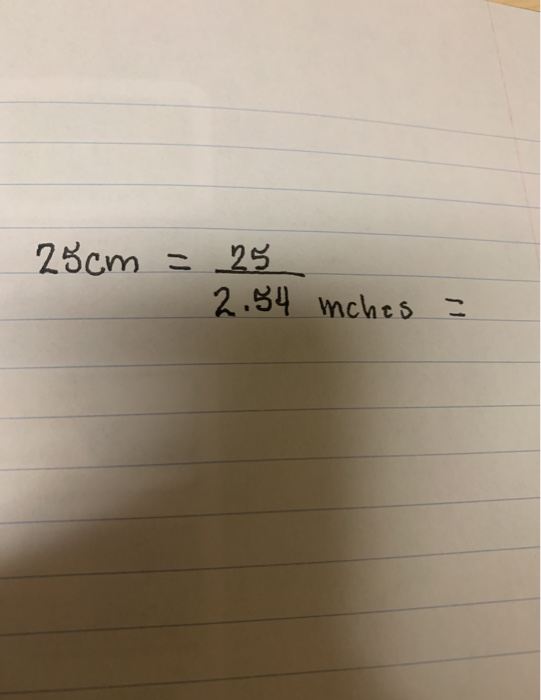 25cm = 25
2.54 inches =